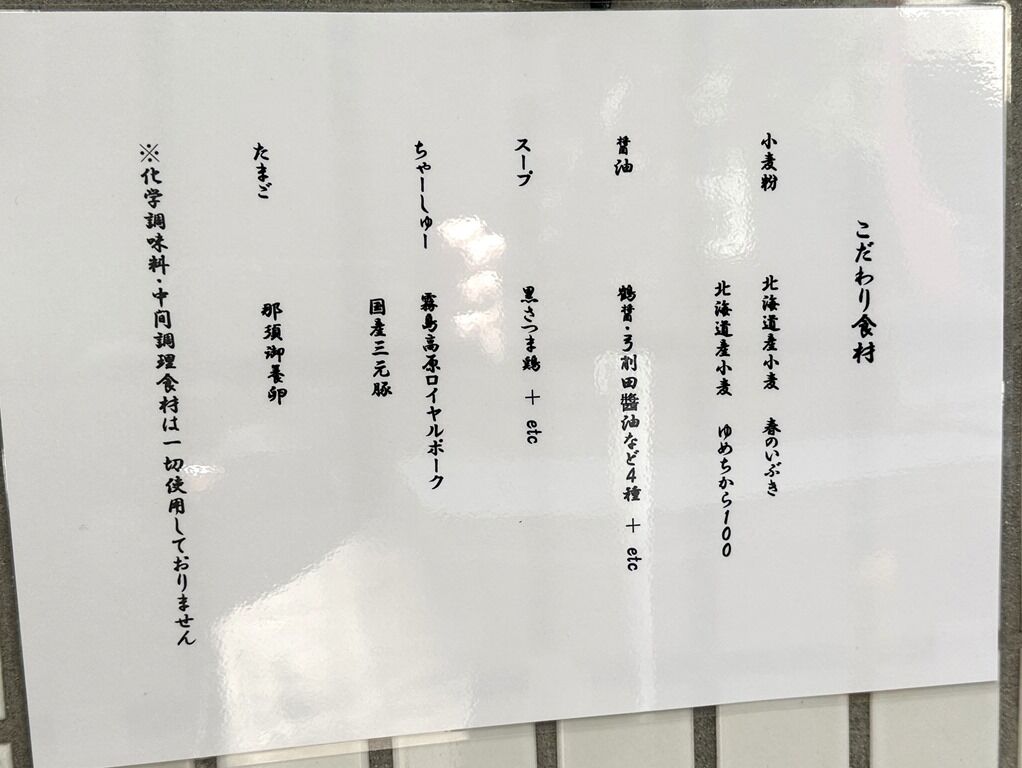 こだわり食材
小麦粉 北海道産小麦 春のいぶき
北海道産小麦 ゆめちから100
醤油 鶴醤・弓削田醬油など4種 + etc
スープ 黒さつま鶏 + etc
ちゃーしゅー 霧島高原ロイヤルポーク
国産三元豚
たまご 那須御養卵
※化学調味料・中間調理食材は一切使用しておりません